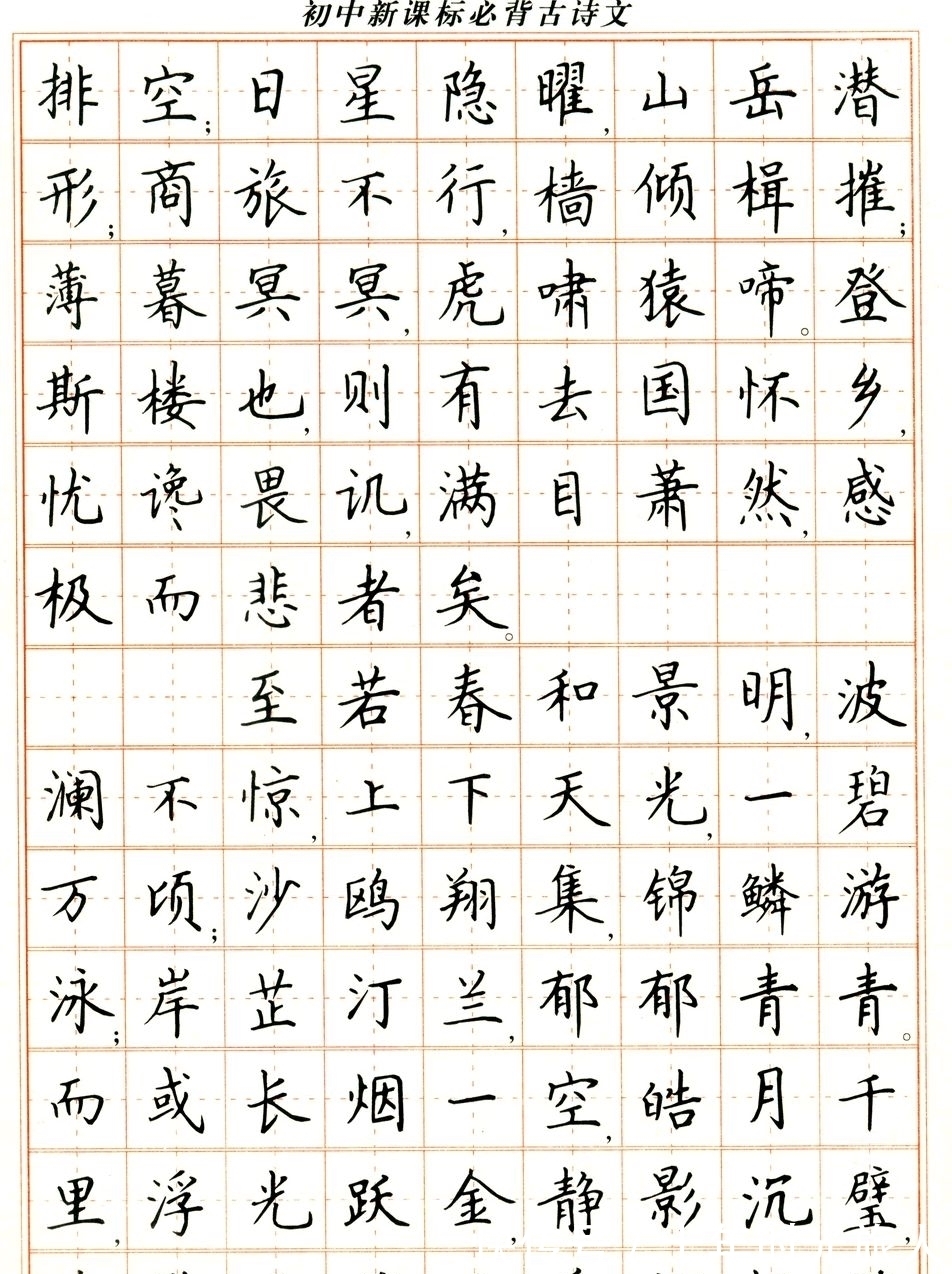 初中新课标必背古诗文
排空;日星隐曜,山岳潜
形;商旅不行,樯倾楫摧;
薄暮冥冥,虎啸猿啼。登
斯楼也,则有去国怀乡,
忧谗畏讥,满目萧然,感
极而悲者矣。
至若春和景明,波
澜不惊,上下天光,一碧
万顷;沙鸥翔集,锦鳞游
泳;岸芷汀兰,郁郁青青。
而或长烟一空,皓月千
里,浮光跃金,静影沉璧,